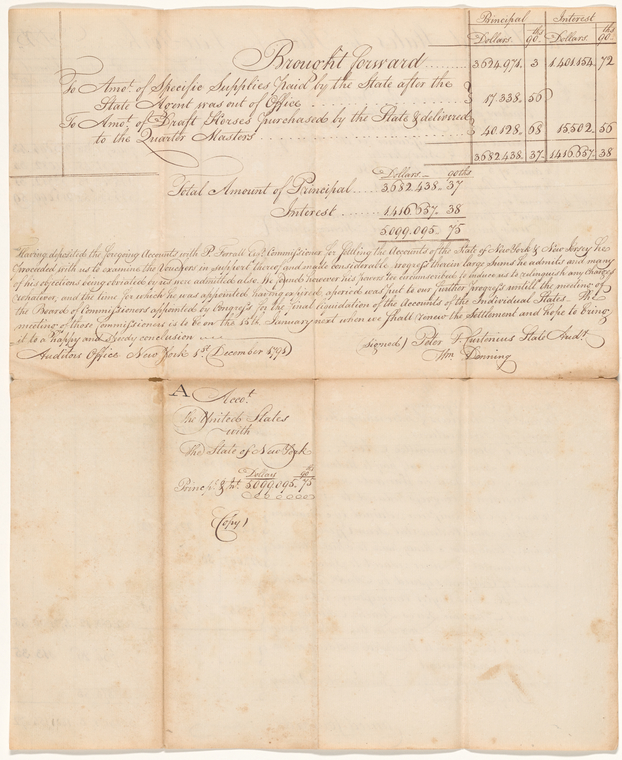 Principal Interest
Dollars. ths 90. Dollars ths 90.
Brought forward 3624.971. 3 1401154. 72
To Amot. of Specific Supplies paid by the State after the
State Agent was out of Office 17.338. 56
To Amot. of Draft Horses purchased by the State & delivered
to the Quarter Masters 40.128. 68 15502. 56
3682438. 37. 1416657. 38
Dollars. 90ths
Total Amount of Principal 3682438. 37
Interest 1416657. 38
5099.095. 75
Having deposited the foregoing Accounts with P. Ferrall Esqr. Commissioner for settling the Accounts of the State of New York & New Jersey he
proceeded with us to examine the Vouchers in support thereof and made considerable progress wherein large sums he admits and many
of his objections being obviated by us now admitted also. He found however his powers too circumscribed to induce us to relinquish any Charges
whatever, and the time for which he was appointed having expired a period was put to our further progress untill the meeting of
the Board of Commissioners appointed by Congress for the final liquidation of the Accounts of the Individual States. The
meeting of those Commissioners is to be on the 15th January next when we shall renew the Settlement and hope to bring
it to a happy and speedy conclusion
Auditors Office New York 1st December 1791) signed) Peter T. Curtenius State Audr.
Wm Denning
A Accot.
the United States
with
The State of New York
Dollars ths 90
Princip. & Int. 5.099.095. 75
(Copy)